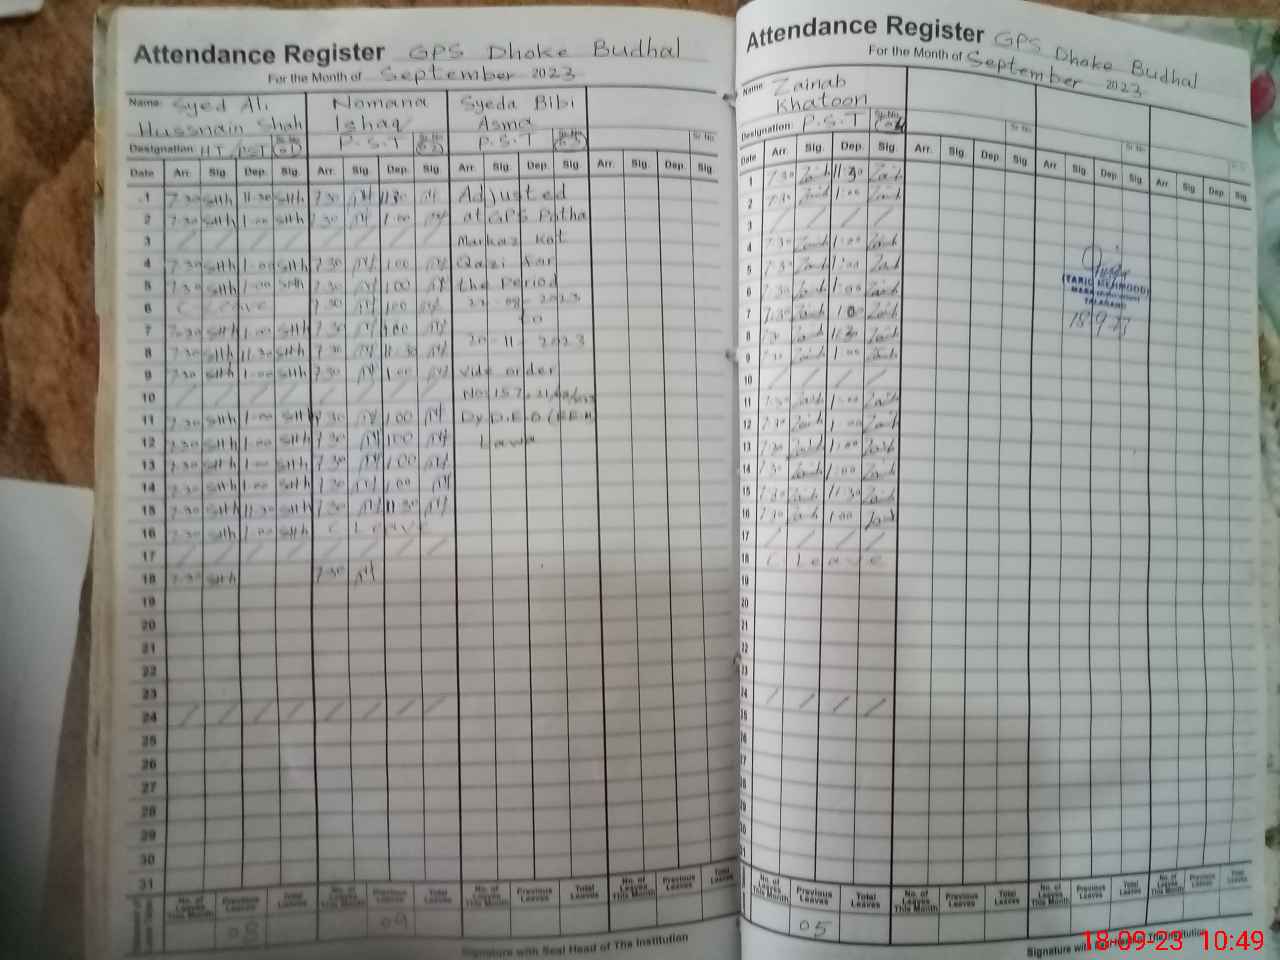 Attendance Register GPS Dhoke Budhal
For the Month of September 2023
Name: Syed Ali Hussnain Shah
Nomana Ishaq
Syeda Bibi Asma
Designation: HT / PST Sr. No. 01
P.S.T Sr. No.
P.S.T Sr. No. 03
Sr. No.
Date Arr. Sig. Dep. Sig. Arr. Sig. Dep. Sig. Arr. Sig. Dep. Sig. Arr. Sig. Dep. Sig.
1 7.30 SHh 11.30 SHh 7.30 11.30 Adjusted
2 7.30 SHh 1.00 SHh 7.30 1.00 at GPS
3 / / / / / / / / Markaz Kot
4 7.30 SHh 1.00 SHh 7.30 1.00 Qazi for
5 7.30 SHh 1.00 SHh 7.30 1.00 the Period
6 C Leave 7.30 1.00 2023
7 7.30 SHh 1.00 SHh 7.30 1.00 to
8 7.30 SHh 11.30 SHh 7.30 11.30 20-11-2023
9 7.30 SHh 1.00 SHh 7.30 1.00 vide order
10 / / / / / / / / No.
11 7.30 SHh 1.00 SHh 7.30 1.00 Dy. D.E.O
12 7.30 SHh 1.00 SHh 7.30 1.00 Lawa
13 7.30 SHh 1.00 SHh 7.30 1.00
14 7.30 SHh 1.00 SHh 7.30 1.00
15 7.30 SHh 11.30 SHh 7.30 11.30
16 7.30 SHh 1.00 SHh C Leave
17 / / / / / / / /
18 7.30 SHh 7.30
19
20
21
22
23
24 / / / / / / / /
25
26
27
28
29
30
31
No. of Leaves This Month Previous Leaves Total Leaves No. of Leaves This Month Previous Leaves Total Leaves No. of Leaves This Month Previous Leaves Total Leaves No. of Leaves This Month Previous Leaves Total Leaves
08 09
Signature with Seal Head of The Institution
Attendance Register GPS Dhoke Budhal
For the Month of September 2023
Name: Zainab Khatoon
Designation: P.S.T Sr. No. 04
Sr. No.
Sr. No.
Date Arr. Sig. Dep. Sig. Arr. Sig. Dep. Sig. Arr. Sig. Dep. Sig. Arr. Sig. Dep. Sig.
1 7.30 Zainb 11.30 Zainb
2 7.30 Zainb 1.00 Zainb
3 / / / /
4 7.30 Zainb 1.00 Zainb
5 7.30 Zainb 1.00 Zainb
6 7.30 Zainb 1.00 Zainb
7 7.30 Zainb 1.00 Zainb
8 7.30 Zainb 11.30 Zainb
9 7.30 Zainb 1.00 Zainb
10 / / / /
11 7.30 Zainb 1.00 Zainb
12 7.30 Zainb 1.00 Zainb
13 7.30 Zainb 1.00 Zainb
14 7.30 Zainb 1.00 Zainb
15 7.30 Zainb 11.30 Zainb
16 7.30 Zainb 1.00 Zainb
17 / / / /
18 C Leave
19
20
21
22
23
24 / / / /
25
26
27
28
29
30
31
(TARIQ MEHMOOD)
TALAGANG
18-9-23
No. of Leaves This Month Previous Leaves Total Leaves No. of Leaves This Month Previous Leaves Total Leaves No. of Leaves This Month Previous Leaves Total Leaves No. of Leaves This Month Previous Leaves Total Leaves
05
Signature with Seal Head of The Institution
18-09-23 10:49